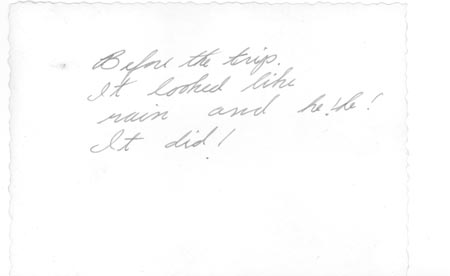 Before the trip.
It looked like
rain and he! he!
It did!